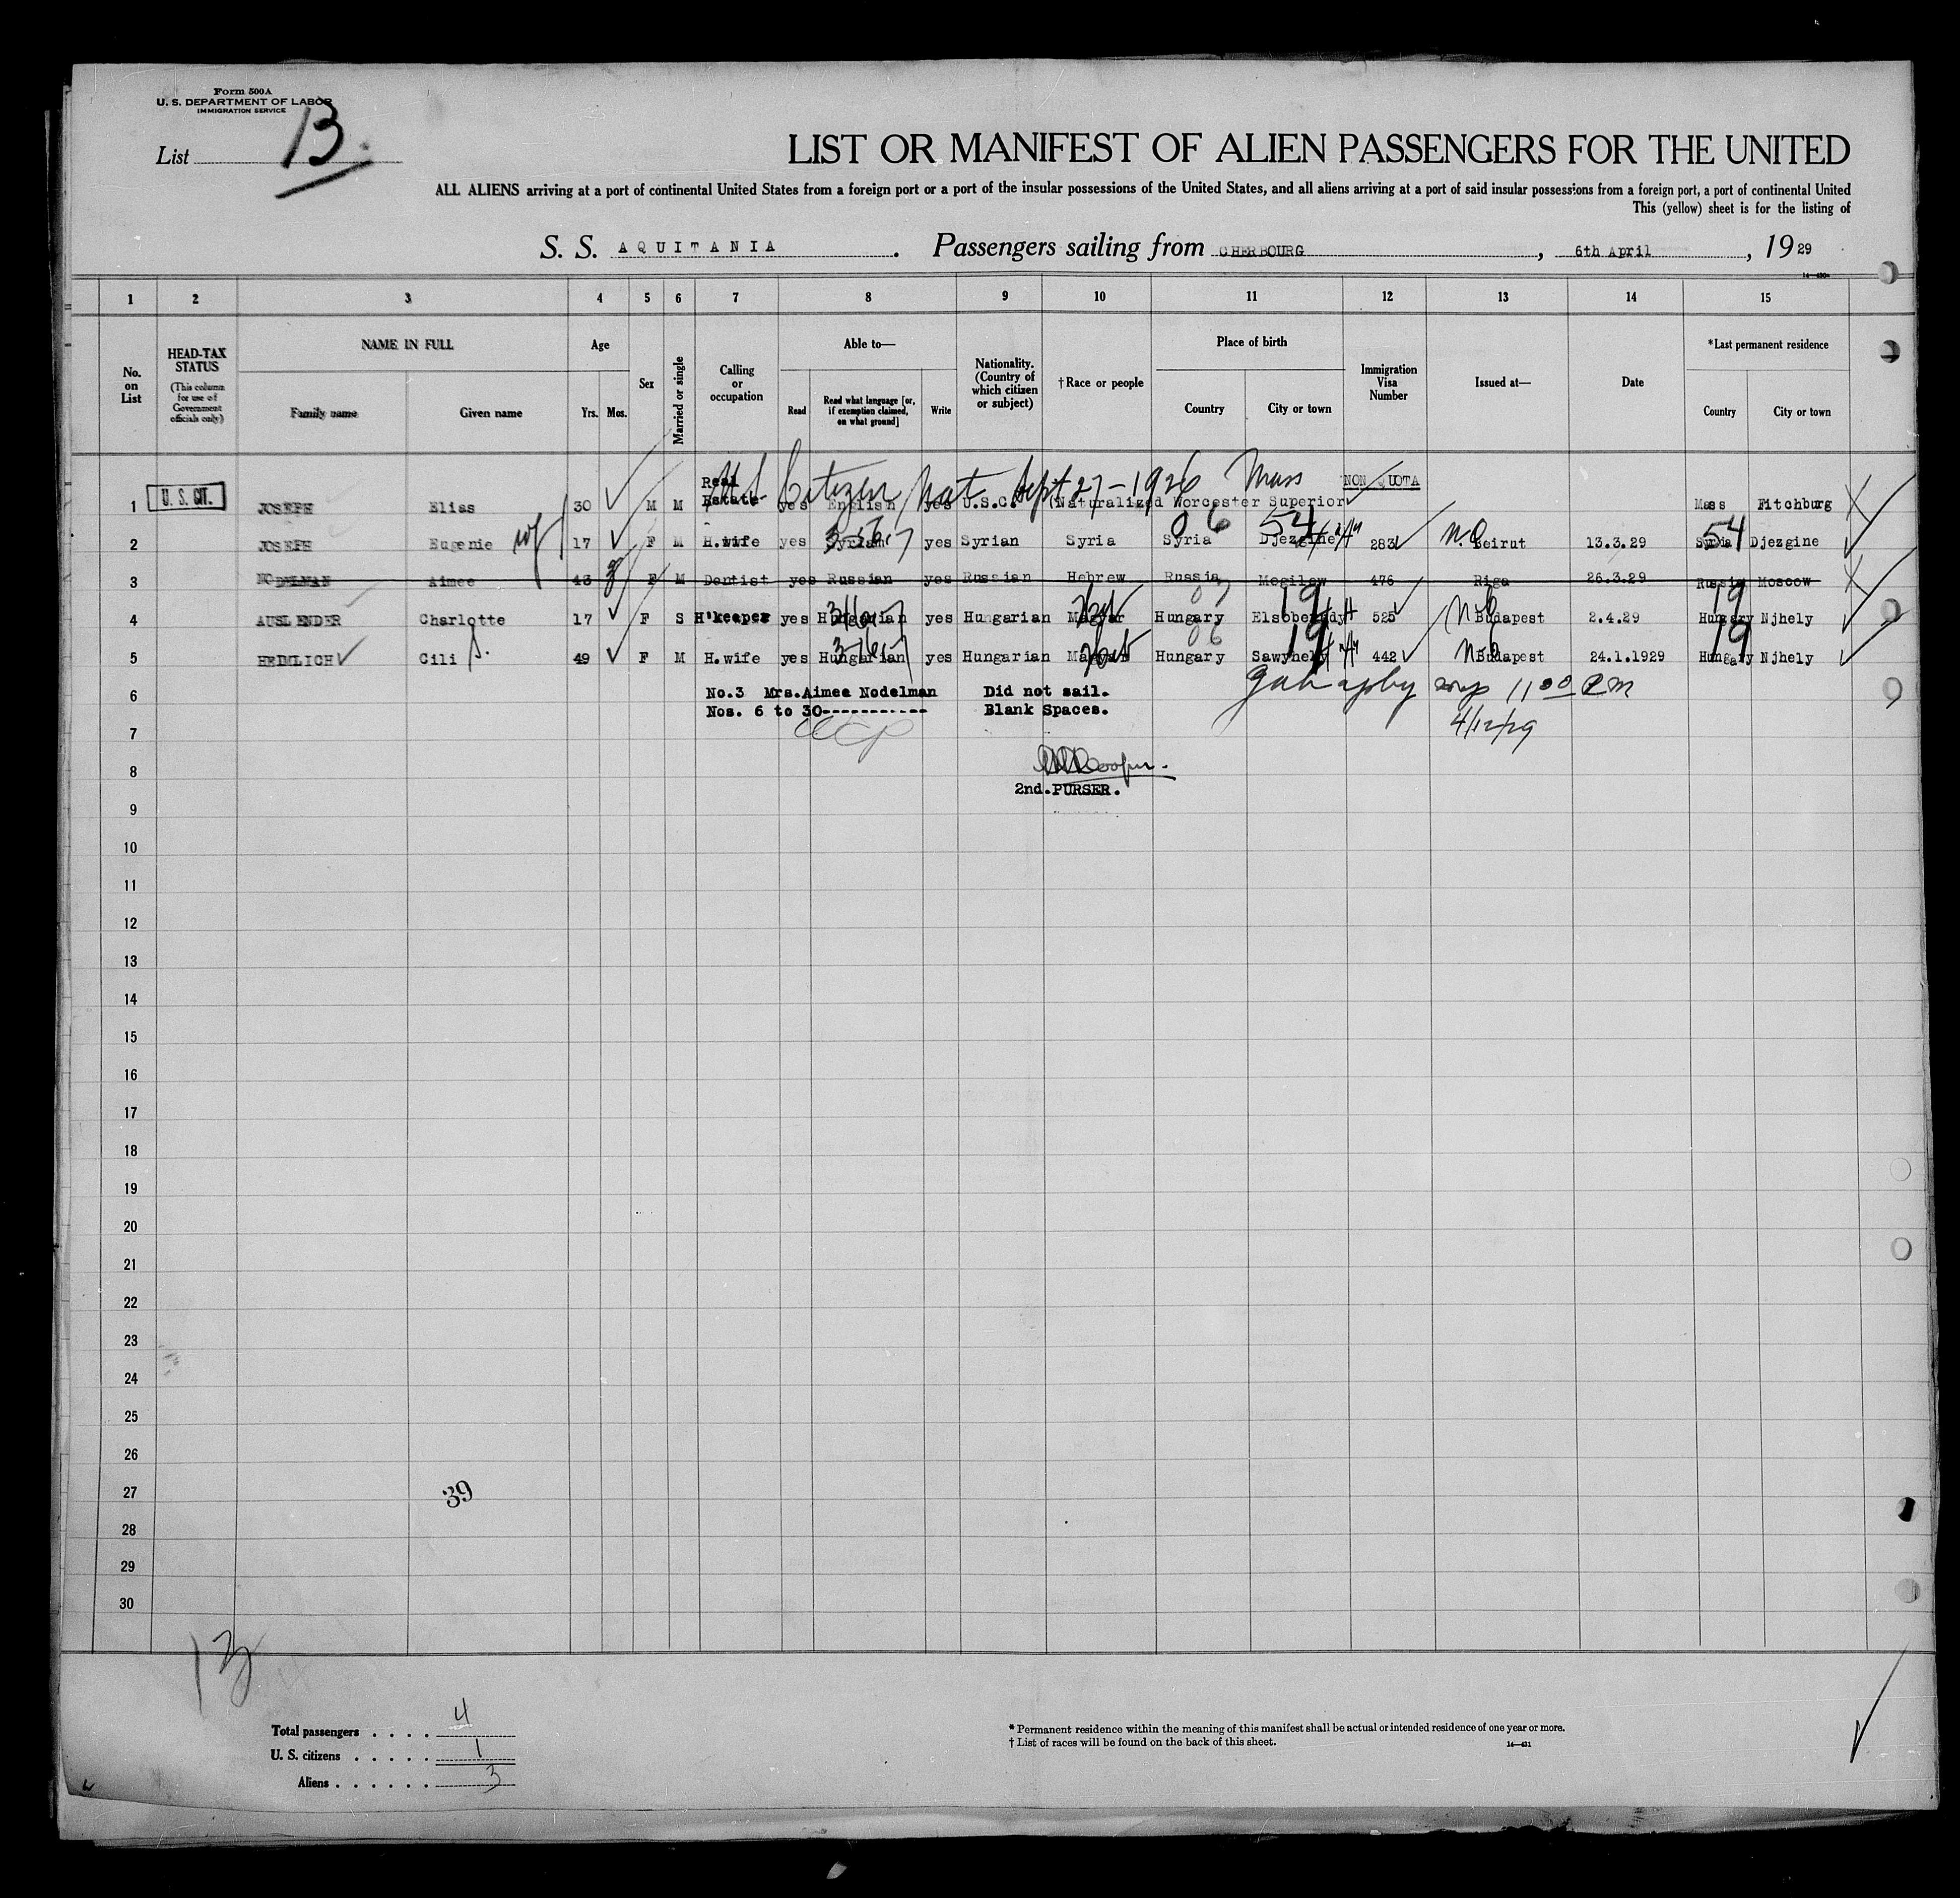 Form 500A
U. S. DEPARTMENT OF LABOR
IMMIGRATION SERVICE
List 13.
LIST OR MANIFEST OF ALIEN PASSENGERS FOR THE UNITED
ALL ALIENS arriving at a port of continental United States from a foreign port or a port of the insular possessions of the United States, and all aliens arriving at a port of said insular possessions from a foreign port, a port of continental United
This (yellow) sheet is for the listing of
S. S. AQUITANIA . Passengers sailing from CHERBOURG , 6th April , 19 29
1 2 3 4 5 6 7 8 9 10 11 12 13 14 15
No. on List
HEAD-TAX STATUS (This column for use of Government officials only)
NAME IN FULL
Family name Given name
Age
Yrs. Mos.
Sex
Married or single
Calling or occupation
Able to—
Read
Read what language [or, if exemption claimed, on what ground]
Write
Nationality. (Country of which citizen or subject)
† Race or people
Place of birth
Country City or town
Immigration Visa Number
Issued at—
Date
*Last permanent residence
Country City or town
US Citizen Nat. Sept 27-1926 Mass
NON QUOTA
1 U. S. CIT. JOSEPH Elias 30 M M Real Estate yes English yes U.S.C. (Naturalized Worcester Superior Mass Fitchburg
2 JOSEPH Eugenie wf 17 F M H.wife yes Syrian yes Syrian Syria Syria 06 Djezgine 54 283 Beirut 13.3.29 Syria 54 Djezgine
3 NODELMAN Aimee 43 F M Dentist yes Russian yes Russian Hebrew Russia Mogilew 476 Riga 26.3.29 Russia Moscow
4 AUSLENDER Charlotte 17 F S H'keeper yes Hungarian yes Hungarian Magyar Hungary 19 525 Budapest 2.4.29 Hungary 19 Njhely
5 HEIMLICH Cili S. 49 F M H.wife yes Hungarian yes Hungarian Magyar Hungary 06 Sawyhely 19 442 Budapest 24.1.1929 Hungary 19 Njhely
6 No.3 Mrs.Aimee Nodelman Did not sail.
Nos. 6 to 30----------- Blank Spaces.
11 00 PM
4/12/29
7
8 Cooper.
2nd.PURSER.
9
10
11
12
13
14
15
16
17
18
19
20
21
22
23
24
25
26
27 39
28
29
30
13
Total passengers . . . . 4
U. S. citizens . . . . . 1
Aliens . . . . . . 3
* Permanent residence within the meaning of this manifest shall be actual or intended residence of one year or more.
† List of races will be found on the back of this sheet.
14—431